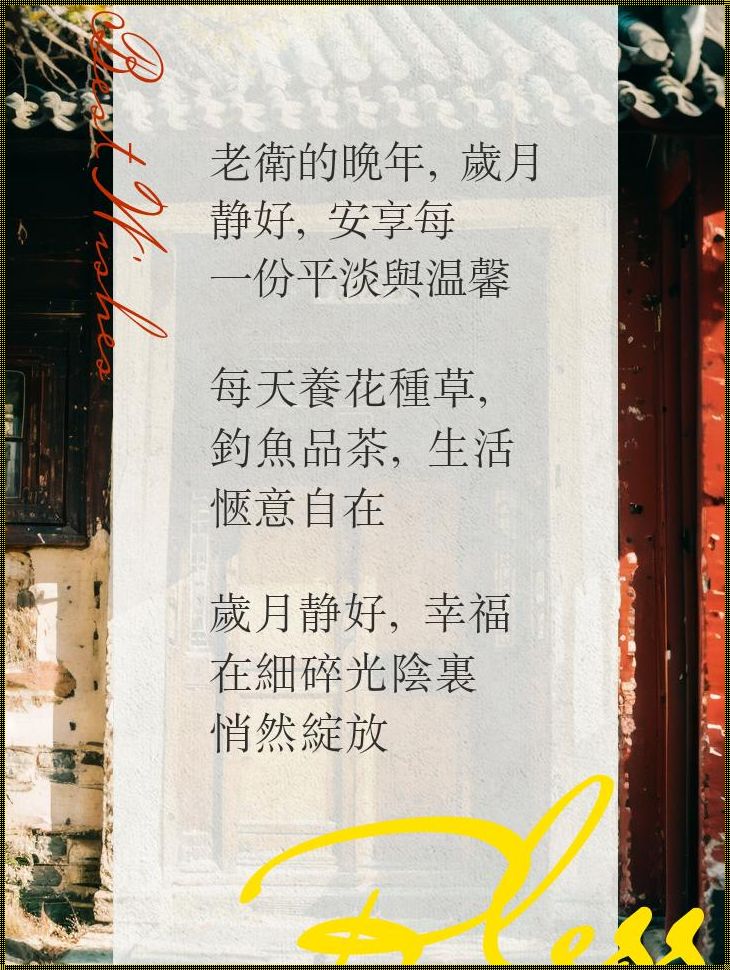 Best Wishes
老衛的晚年，歲月
静好，安享每
一份平淡與温馨
每天養花種草，
釣魚品茶，生活
愜意自在
歲月静好，幸福
在細碎光陰裏
悄然綻放
Bless